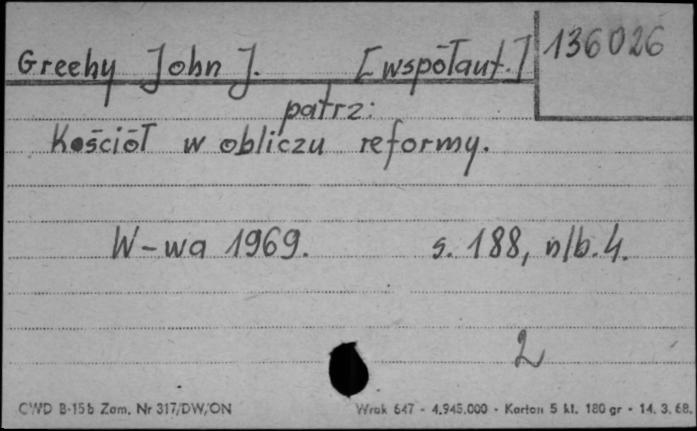 Greehy John J. [współaut.] 136026
patrz:
Kościół w obliczu reformy.
W-wa 1969. s. 188, nlb. 4.
2
CWD B-15b Zam. Nr 317/DW/ON Wrak 647 - 4.945.000 - Karton 5 kl. 180 gr - 14. 3. 68.